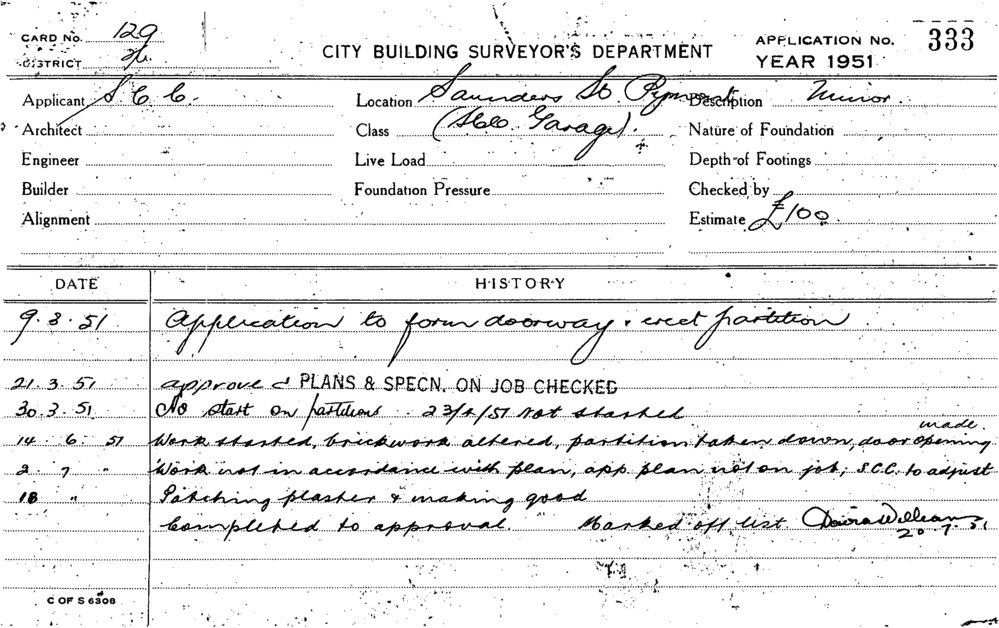 CARD No. 129
DISTRICT
CITY BUILDING SURVEYOR'S DEPARTMENT
APPLICATION No. 333
YEAR 1951
Applicant S.C.C. Location Saunders St. Pyrmont Description Minor.
Architect Class (S.C.C. Garage). Nature of Foundation
Engineer Live Load Depth of Footings
Builder Foundation Pressure Checked by
Alignment Estimate £100
DATE HISTORY
9.3.51 Application to form doorway & erect partition
21.3.51 approved PLANS & SPECN. ON JOB CHECKED
30.3.51 No start on partitions .. 23/4/51 Not started
made.
14.6.51 Work started, brickwork altered, partition taken down, door opening
2. 7 " Work not in accordance with plan, app. plan not on job, S.C.C. to adjust
18 " Patching plaster & making good
Completed to approval. Marked off list. David Williams
20.7.51
C OF S 6308